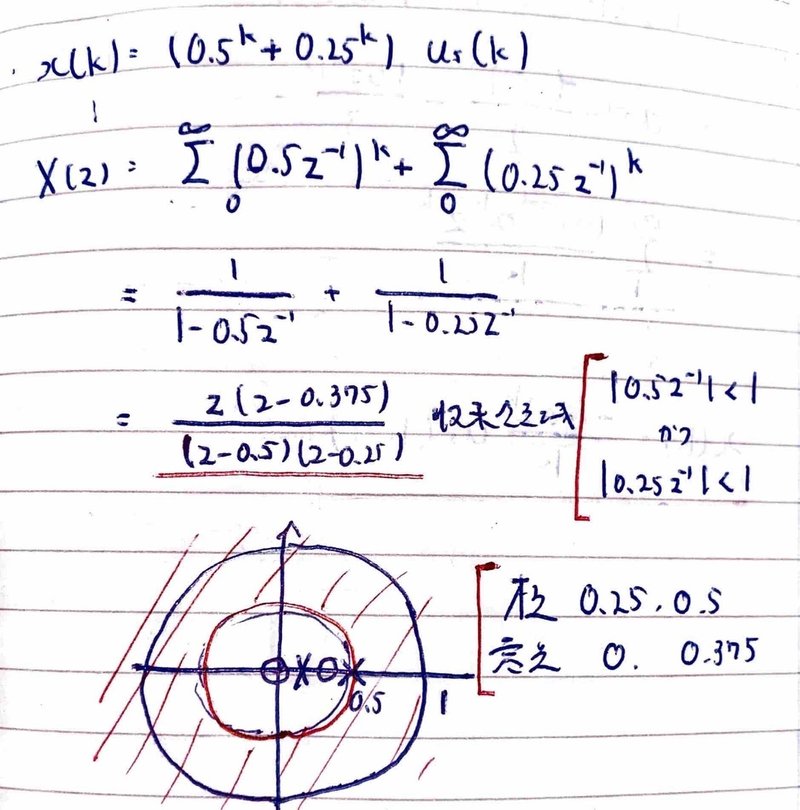 x(k) = (0.5^k + 0.25^k) u_s(k)
X(z) = ∑_0^∞ (0.5z^-1)^k + ∑_0^∞ (0.25z^-1)^k
= 1/(1-0.5z^-1) + 1/(1-0.25z^-1)
= z(z-0.375)/((z-0.5)(z-0.25)) 収束 |0.5z^-1| < 1
かつ
|0.25z^-1| < 1
極 0.25, 0.5
零点 0. 0.375
0.5 1